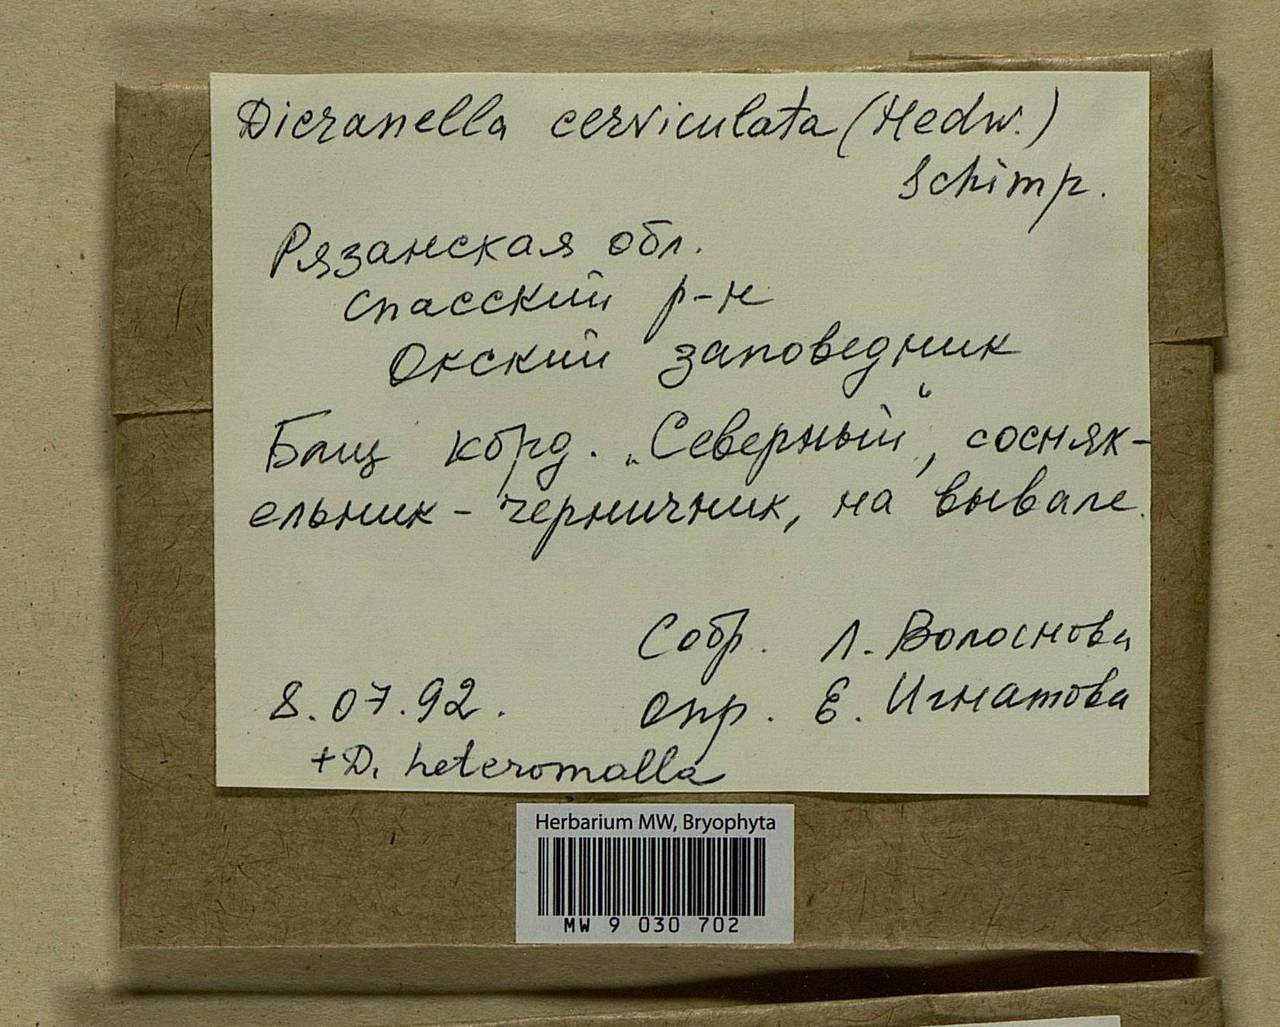 Dicranella cerviculata (Hedw.)
Schimp.
Рязанская обл.
Спасский р-н
Окский заповедник
корд. „Северный“, сосняк-
ельник-черничник, на вывале.
Собр. Л. Волоснова
8.07.92. Опр. Е. Игнатова
+D. heteromalla
Herbarium MW, Bryophyta
MW 9 030 702